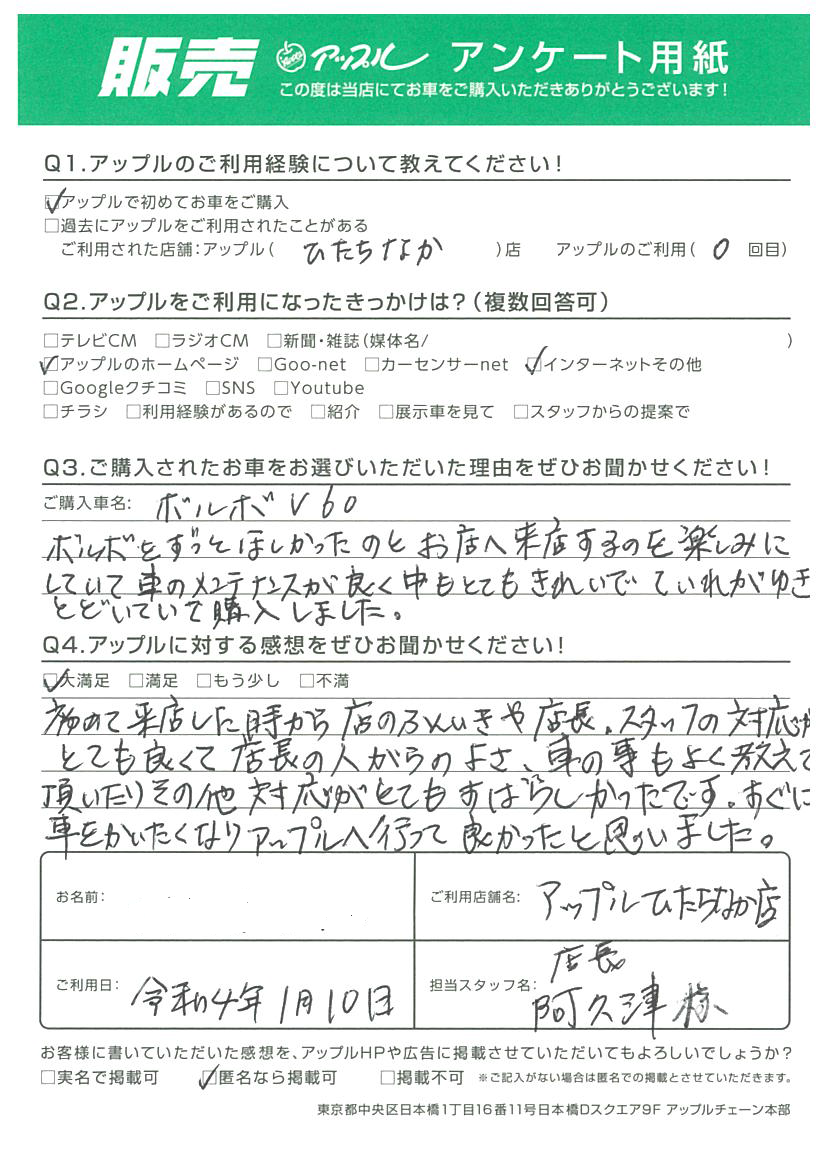 販売 アップル アンケート用紙
この度は当店にてお車をご購入いただきありがとうございます!
Q1.アップルのご利用経験について教えてください!
☑アップルで初めてお車をご購入
□過去にアップルをご利用されたことがある
ご利用された店舗:アップル( ひたちなか )店 アップルのご利用( 0 回目)
Q2.アップルをご利用になったきっかけは?(複数回答可)
□テレビCM □ラジオCM □新聞・雑誌(媒体名/ )
☑アップルのホームページ □Goo-net □カーセンサーnet ☑インターネットその他
□Googleクチコミ □SNS □Youtube
□チラシ □利用経験があるので □紹介 □展示車を見て □スタッフからの提案で
Q3.ご購入されたお車をお選びいただいた理由をぜひお聞かせください!
ご購入車名: ボルボV60
ボルボをずっとほしかったのとお店へ来店するのを楽しみに
していて車のメンテナンスが良く中もとてもきれいでていれがゆき
とどいていて購入しました。
Q4.アップルに対する感想をぜひお聞かせください!
☑大満足 □満足 □もう少し □不満
初めて来店した時から店のふんいきや店長、スタッフの対応が
とても良くて店長の人がらのよさ、車の事もよく教えて
頂いたりその他対応がとてもすばらしかったです。すぐに
車をかいたくなりアップルへ行って良かったと思いました。
お名前:
ご利用店舗名: アップルひたちなか店
ご利用日: 令和4年1月10日
担当スタッフ名: 店長
阿久津様
お客様に書いていただいた感想を、アップルHPや広告に掲載させていただいてもよろしいでしょうか?
□実名で掲載可 ☑匿名なら掲載可 □掲載不可 ※ご記入がない場合は匿名での掲載とさせていただきます。
東京都中央区日本橋1丁目16番11号日本橋Dスクエア9F アップルチェーン本部